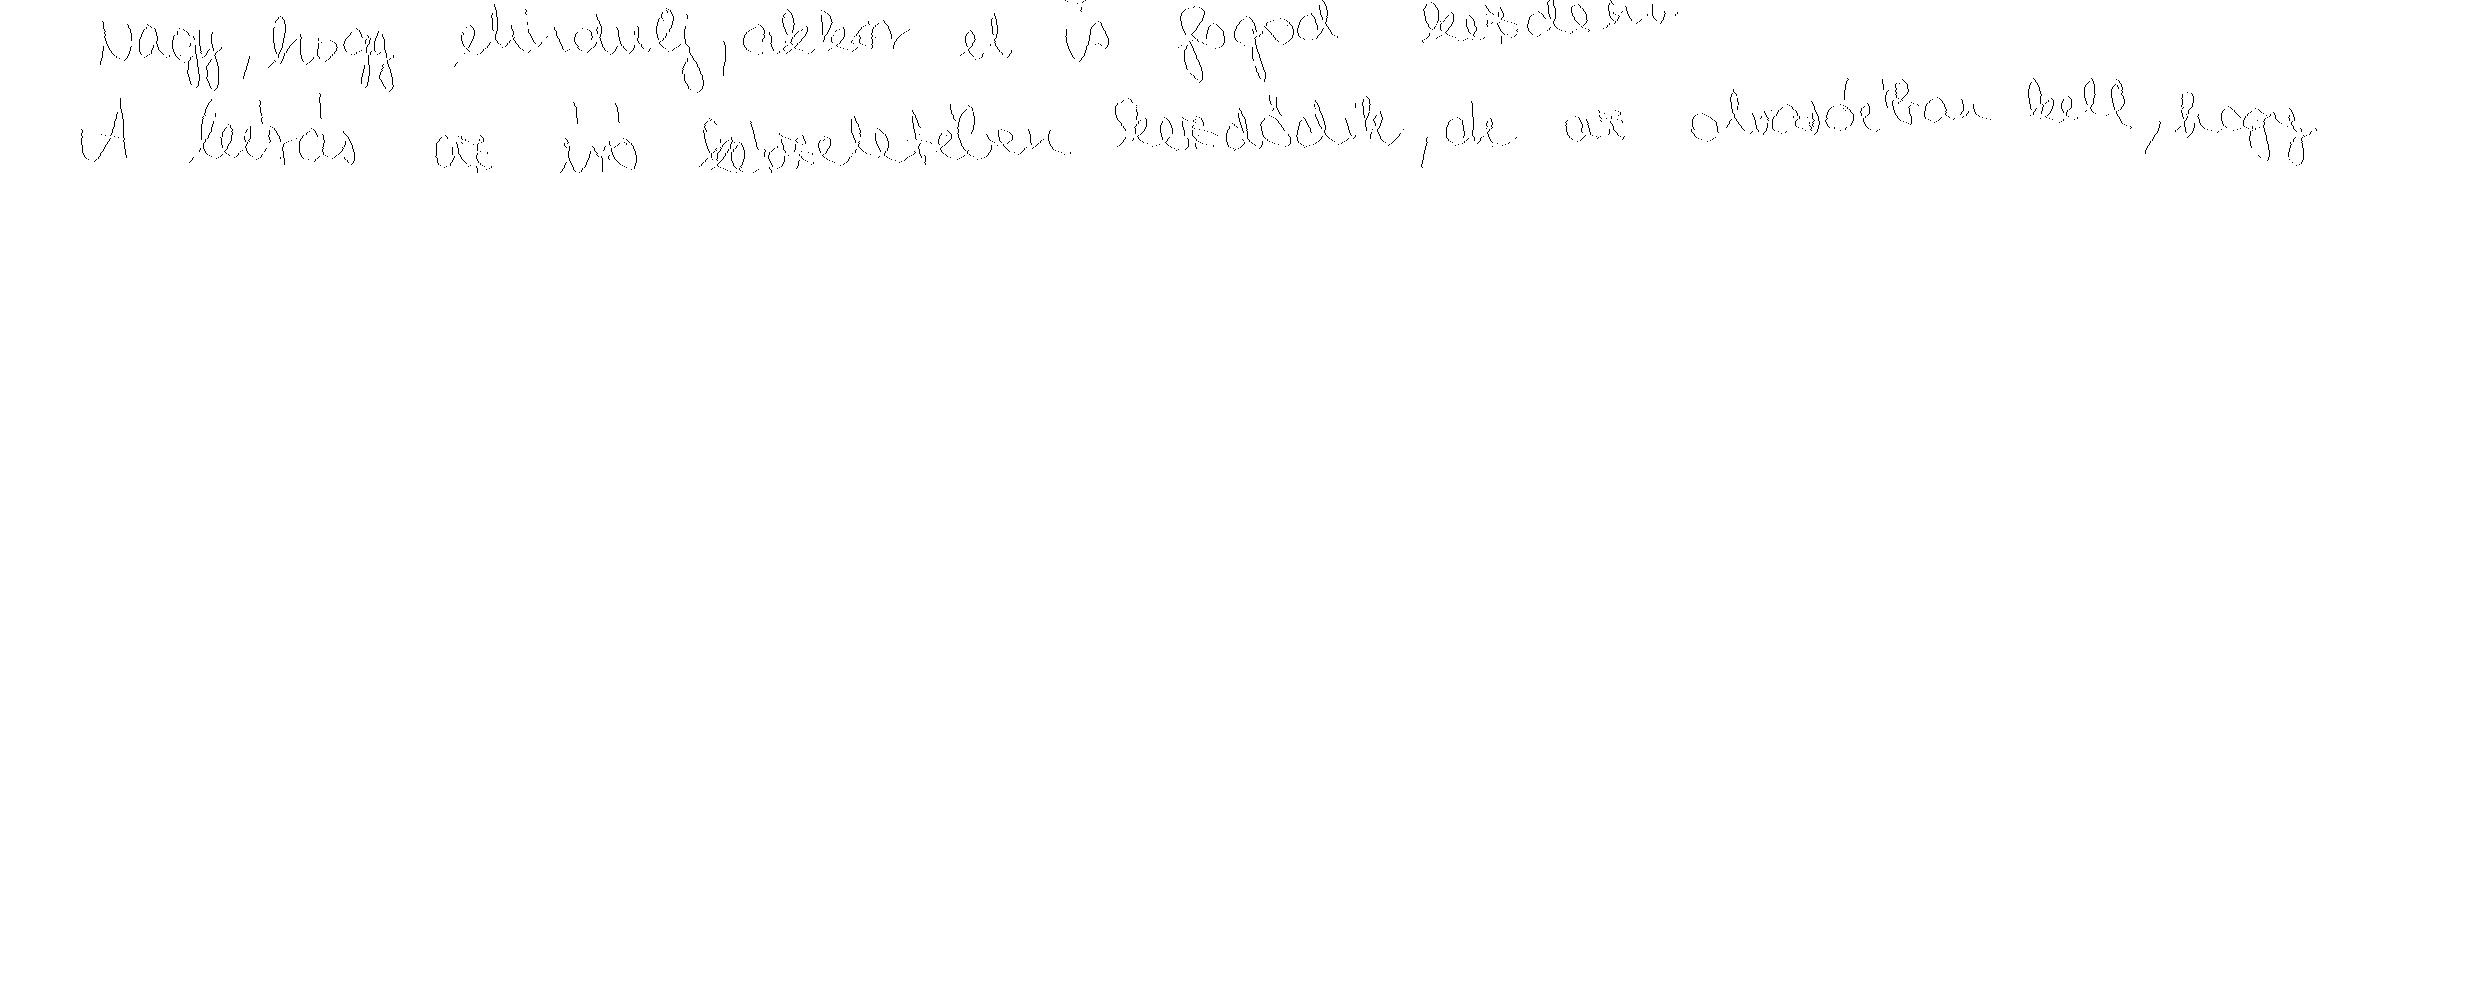 vagy, hogy elindulj, akkor el is fogod kezdeni
A leírás az író képzeletében kezdődik, de az olvasóéban kell, hogy